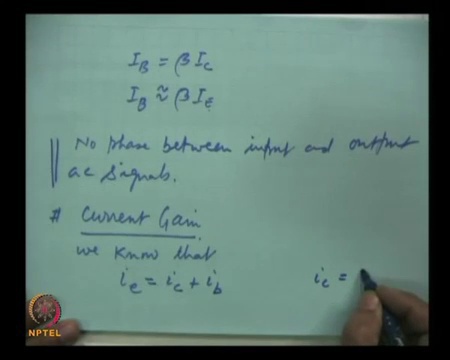 I_B = βI_C
I_B ≈ βI_E
No phase between input and output
ac signals.
# Current Gain
we know that
i_e = i_c + i_b i_c =
NPTEL